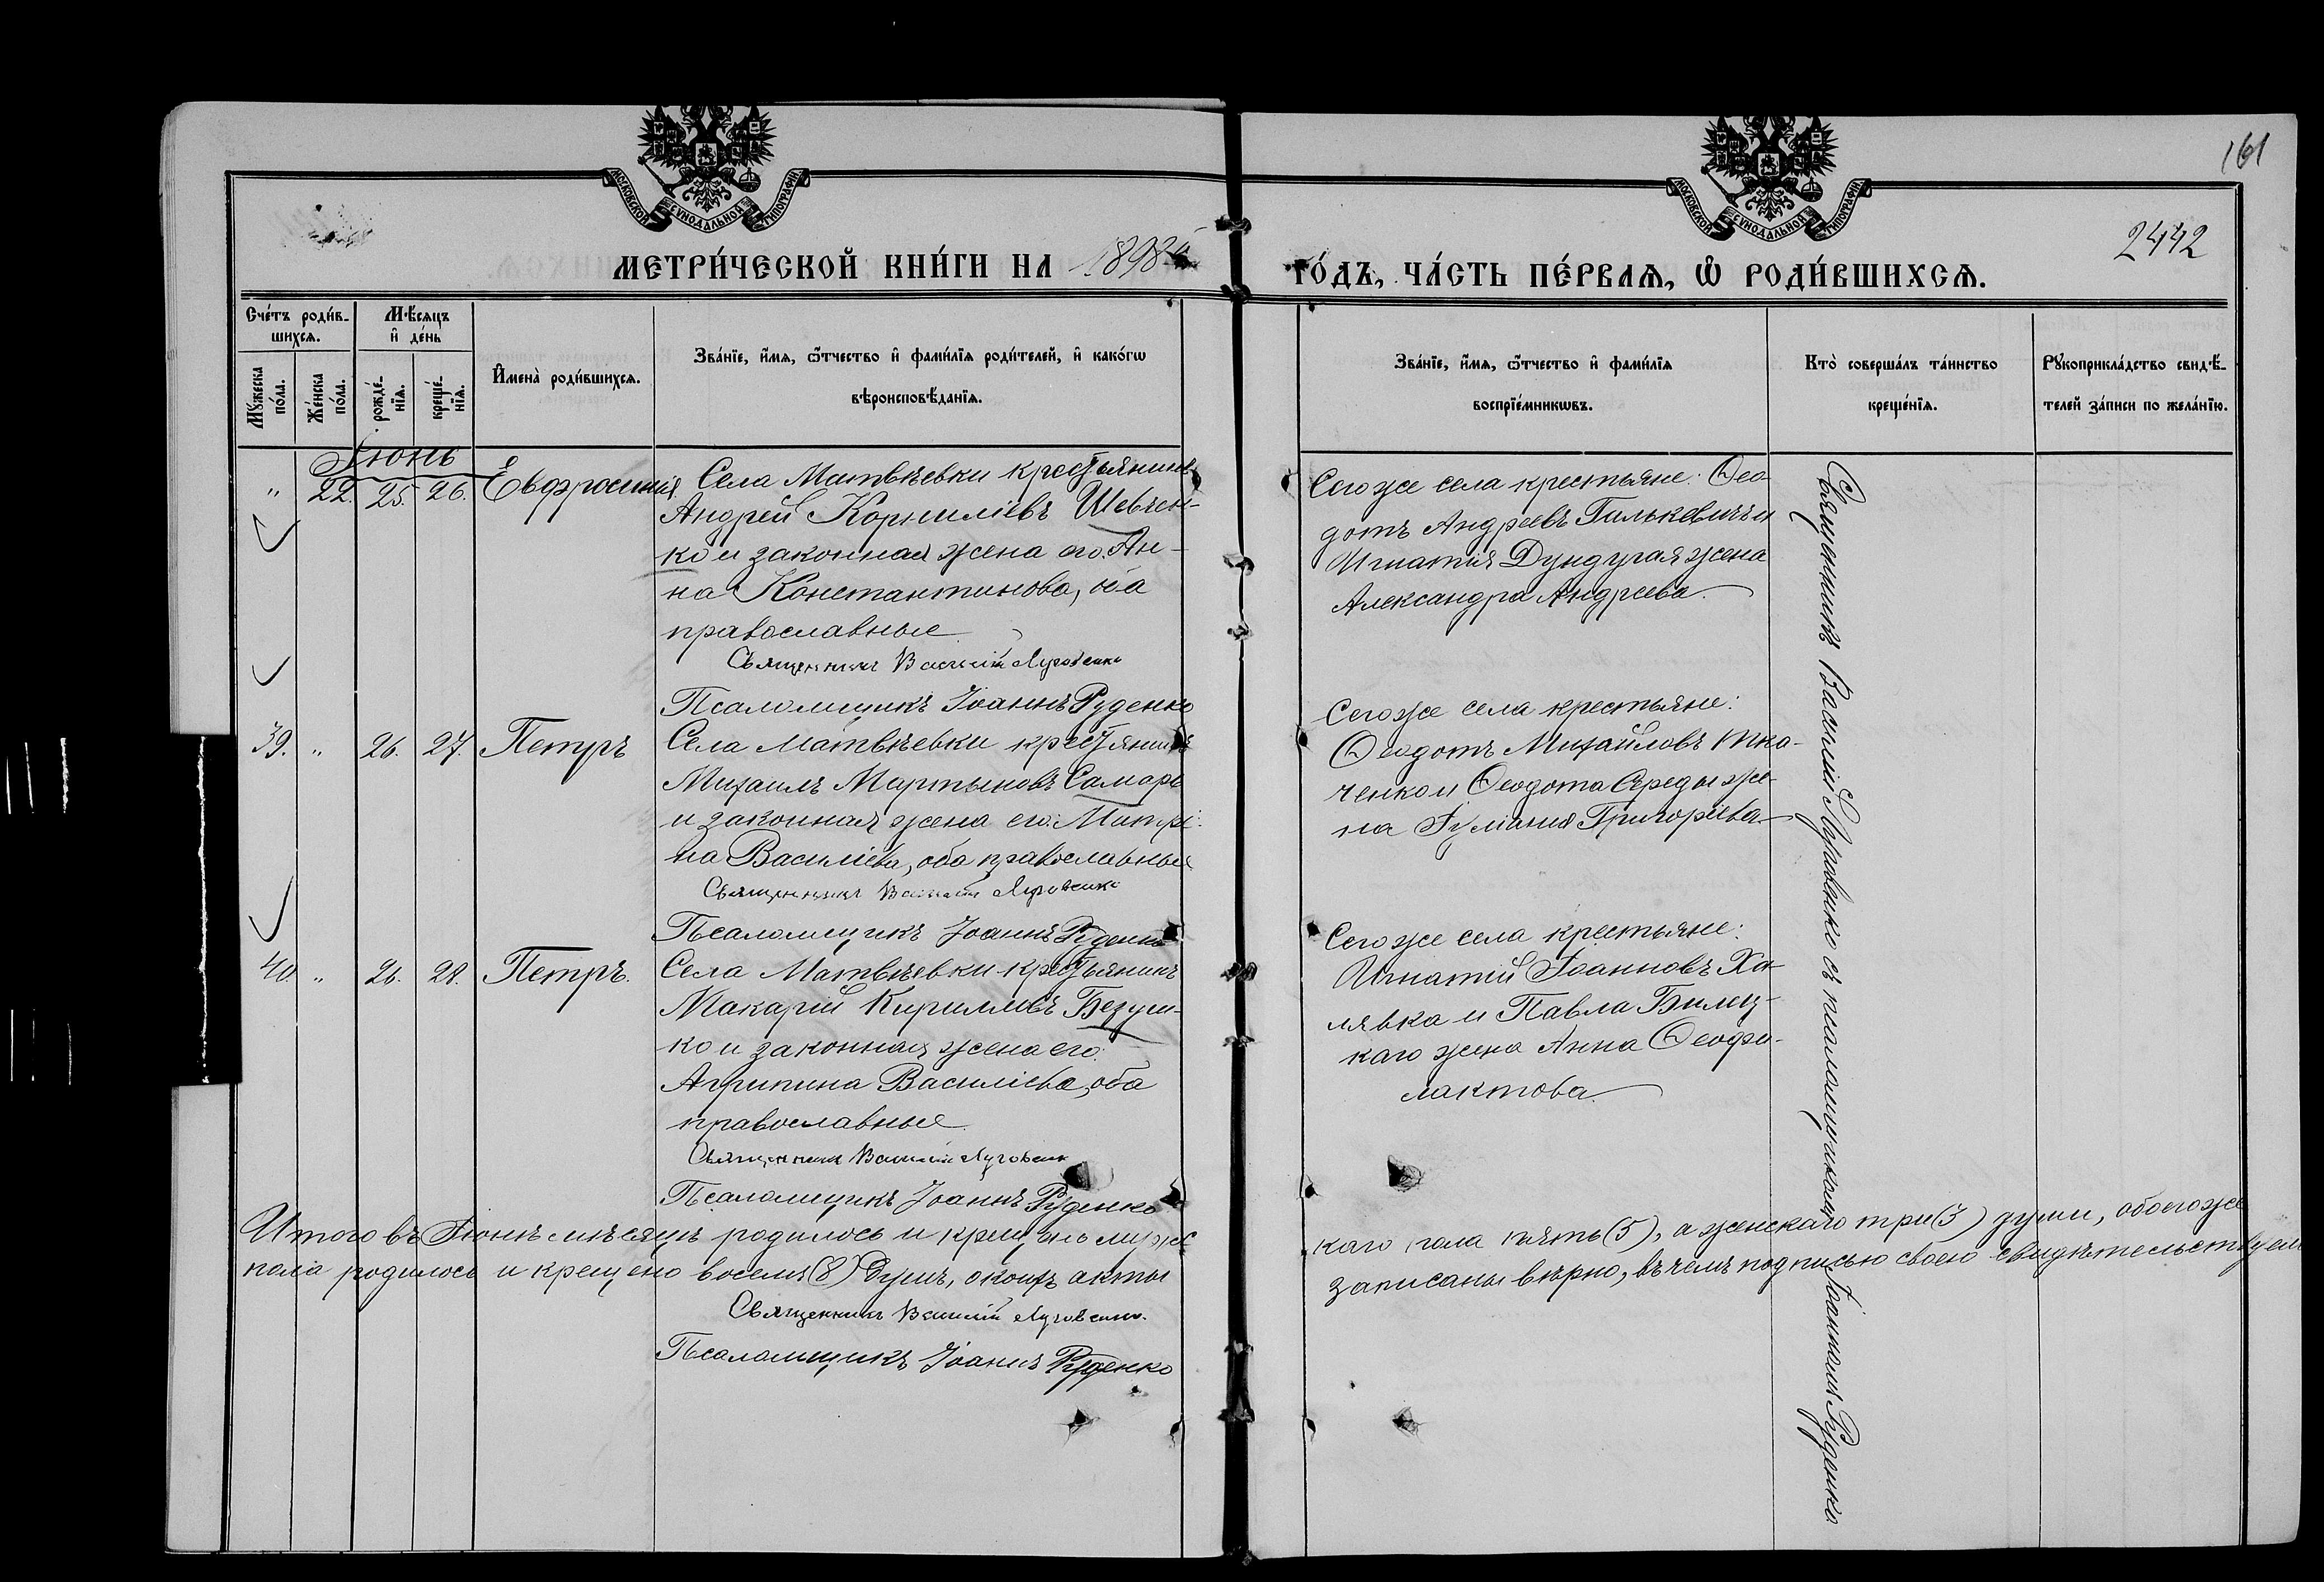 161
2442
МОСКОВСКОЙ СѴНОДАЛЬНОЙ ТИПОГРАФІИ
МОСКОВСКОЙ СѴНОДАЛЬНОЙ ТИПОГРАФІИ
МЕТРИ́ЧЕСКОЙ КНИ́ГИ НА 1898й
ГО́ДЪ, ЧА́СТЬ ПЕ́РВАѦ, Ѽ РОДИ́ВШИХСѦ.
Сче́тъ роди́в-
шихсѧ.
Мꙋ́жеска по́ла.
Же́нска по́ла.
Мѣ́сѧцъ
и҆ де́нь
рожде́-
нїѧ.
креще́-
нїѧ.
И҆мена̀ роди́вшихсѧ.
Зва́нїе, и҆́мѧ, ѻ҆́тчество и҆ фами́лїѧ роди́телей, и҆ како́гѡ
вѣроисповѣ́данїѧ.
Зва́нїе, и҆́мѧ, ѻ҆́тчество и҆ фами́лїѧ
воспрїе́мникѡвъ.
Кто̀ соверша́лъ та́инство
креще́нїѧ.
Рꙋкоприкла́дство свидѣ́-
телей за́писи по жела́нїю.
Іюнь
" 22. 25. 26. Евфросинія
Села Матвѣевки крестьянинъ
Андрей Корниліевъ Шевчен-
ко и законная жена его: Ан-
на Константинова, оба
православные
Священникъ Василій Луговенко
Псаломщикъ Іоаннъ Руденко
Сего же села крестьяне: Ѳео-
дотъ Андреевъ Гилькевичъ и
Игнатія Дундучая жена
Александра Андреева.
39. " 26. 27. Петръ
Села Матвѣевки крестьянинъ
Михаилъ Мартыновъ Самарь
и законная жена его: Матро-
на Василіева, оба православные
Священникъ Василій Луговенко
Псаломщикъ Іоаннъ Руденко
Сего же села крестьяне:
Ѳеодотъ Михайловъ Тка-
ченко и Ѳеодота Середы же-
на Іуліанія Григоріева
40. " 26. 28. Петръ.
Села Матвѣевки крестьянинъ
Макарій Кирилловъ Безуш-
ко и законная жена его:
Агрипина Василіева, оба
православные
Священникъ Василій Луговенко
Псаломщикъ Іоаннъ Руденко
Сего же села крестьяне:
Игнатій Іоанновъ Ха-
лявка и Павла Билец-
каго жена Анна Ѳеофи-
лактова.
Священникъ Василій Луговенко съ псаломщикомъ Іоанномъ Руденко
Итого въ Іюнѣ мѣсяцѣ родилось и крещено мужес
каго пола пять (5), а женскаго три (3) души, обоего же
пола родилось и крещено восемь (8) душъ, о коихъ акты
записаны вѣрно, въ чемъ подписью своею свидѣтельствуемъ
Священникъ Василій Луговенко.
Псаломщикъ Іоаннъ Руденко